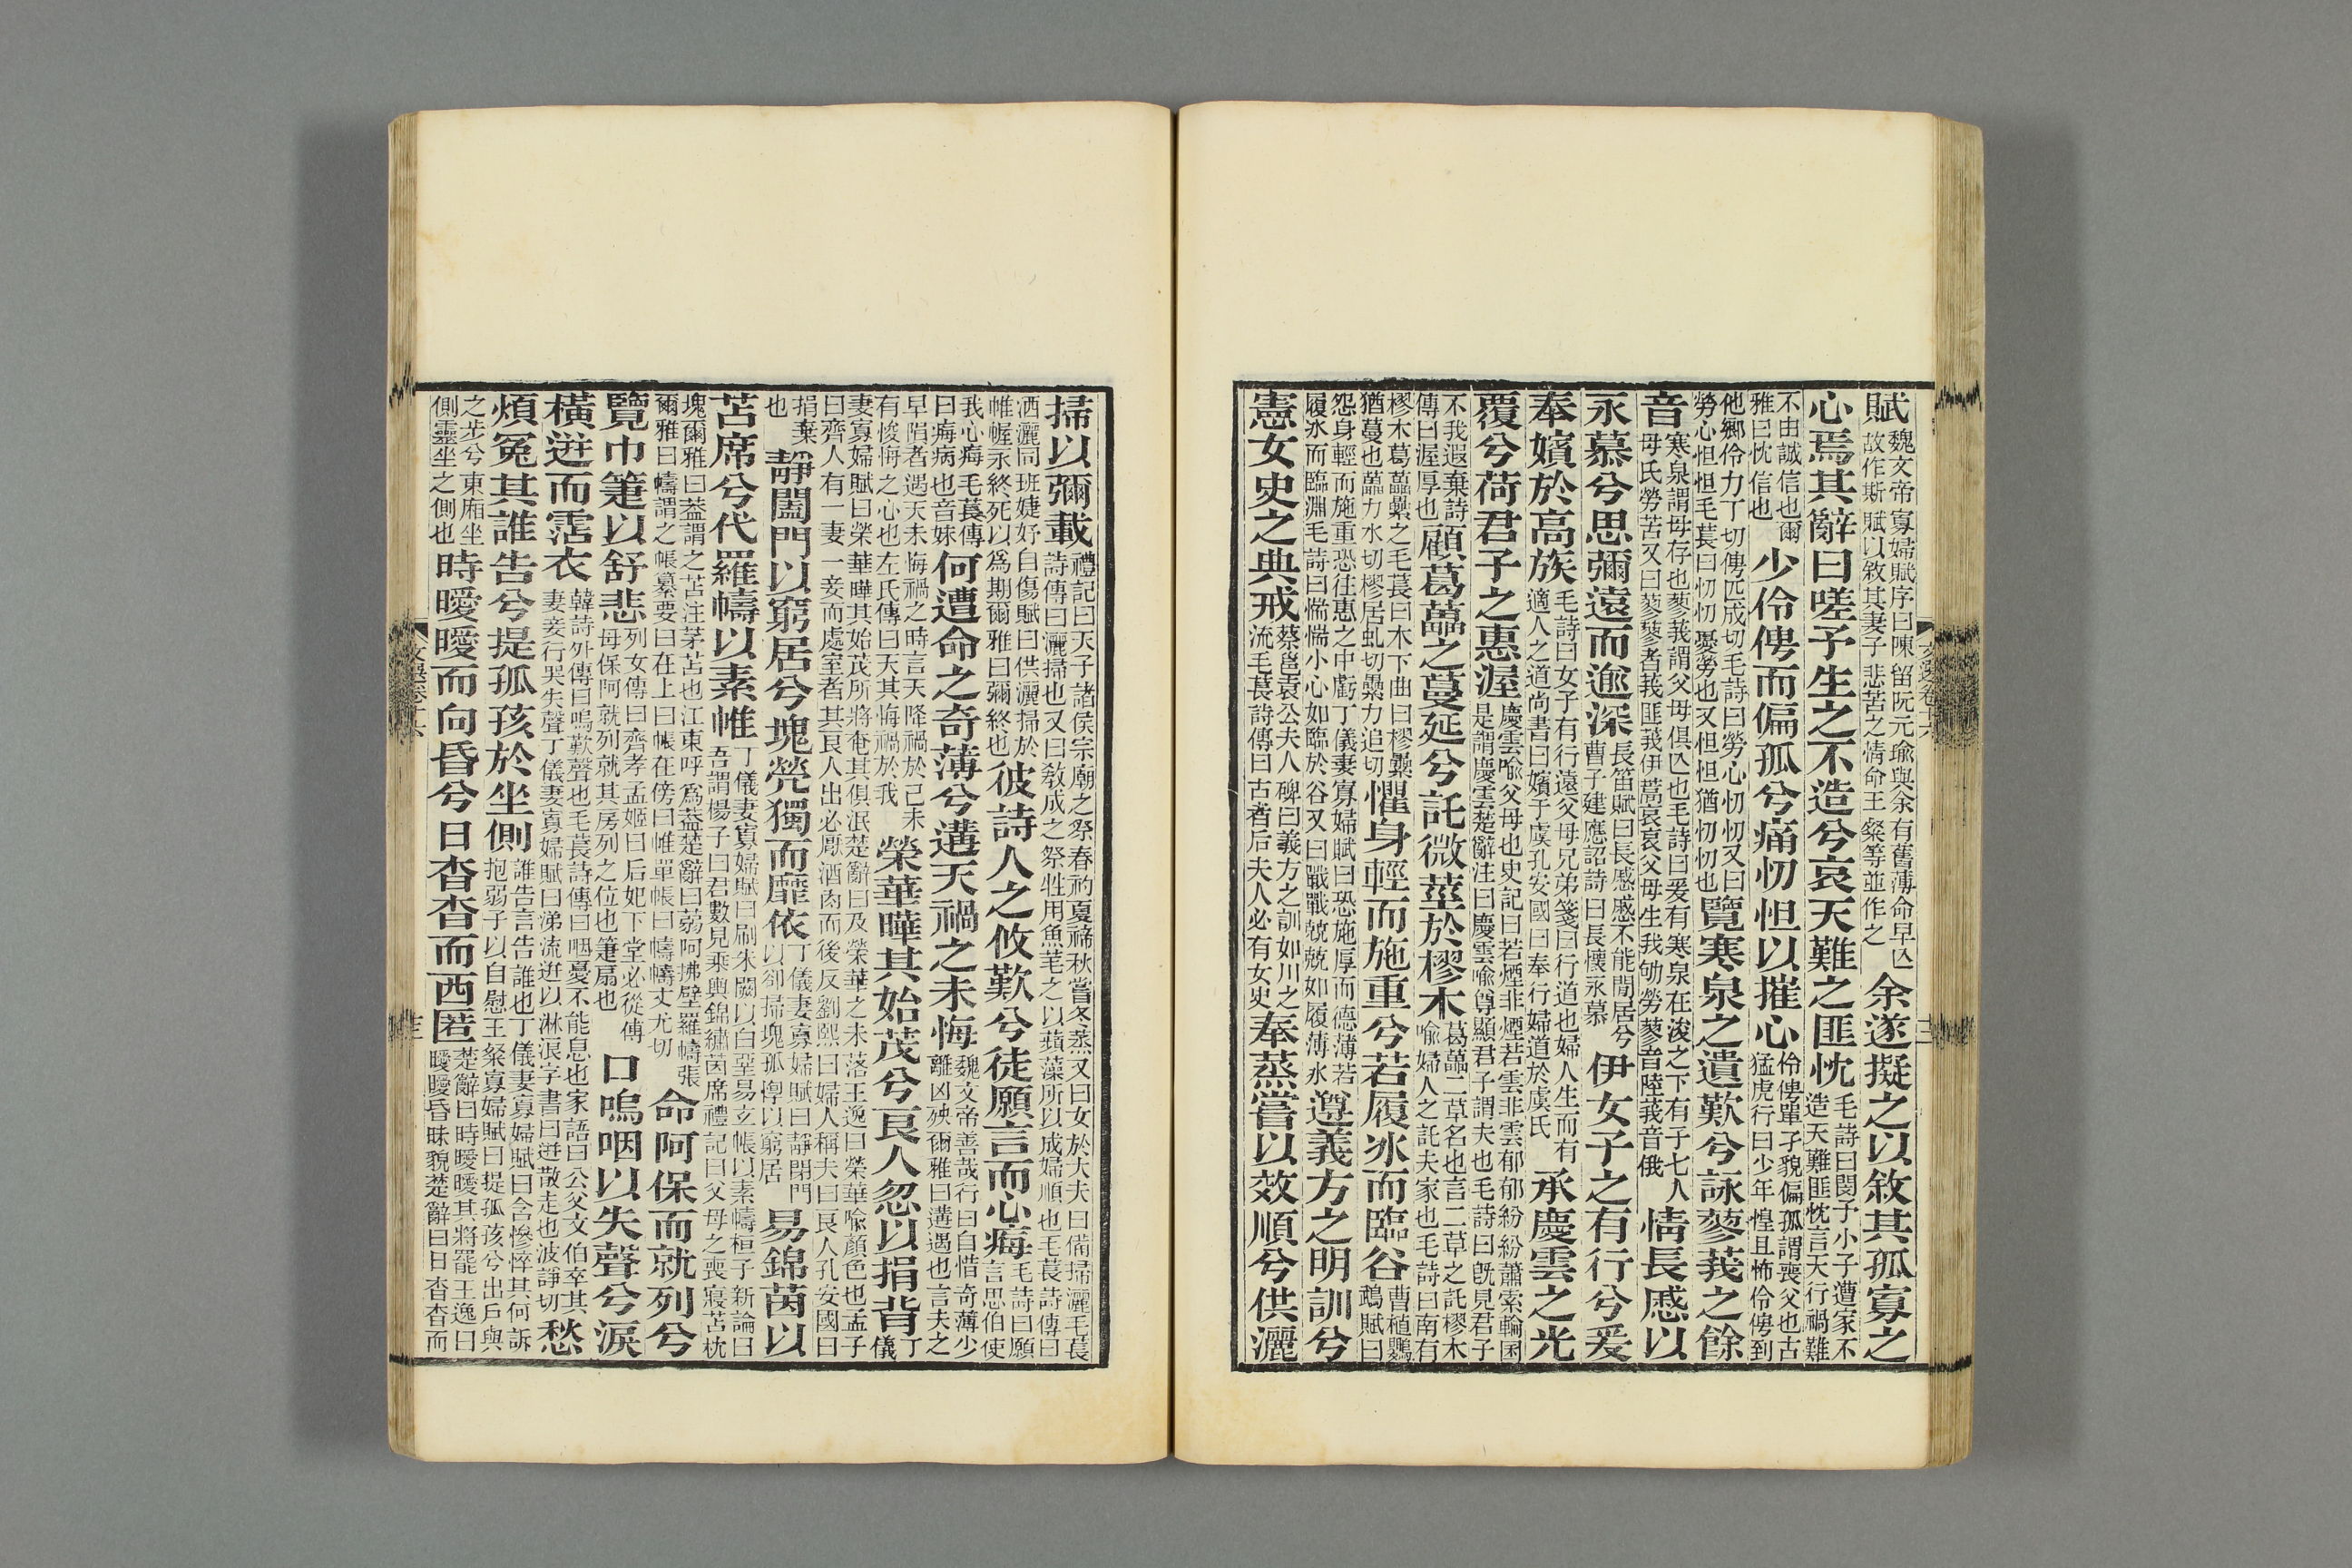 賦魏文帝寡婦賦序曰陳留阮元瑜與余有舊薄命早亡故作斯賦以敘其妻子悲苦之情命王粲等並作之余遂擬之以敘其孤寡之
心焉其辭曰嗟予生之不造兮哀天難之匪忱毛詩曰閔子小子遭家不造天難匪忱言天行禍難
不由誠信也爾雅曰忱信也少伶俜而偏孤兮痛忉怛以摧心伶俜單孑貌偏孤謂喪父也古猛虎行曰少年惶且怖伶俜到
他鄉伶力丁切俜匹成切毛詩曰勞心忉忉又曰勞心怛怛毛萇曰忉忉憂勞也又怛怛猶忉忉也覽寒泉之遺歎兮詠蓼莪之餘
音寒泉謂母存也蓼莪謂父母俱亡也毛詩曰爰有寒泉在浚之下有子七人母氏勞苦又曰蓼蓼者莪匪莪伊蒿哀哀父母生我劬勞蓼音陸莪音俄情長慼以
永慕兮思彌遠而逾深長笛賦曰長慼慼不能閒居兮曹子建應詔詩曰長懷永慕伊女子之有行兮爰
奉嬪於高族毛詩曰女子有行遠父母兄弟箋曰行道也婦人生而有適人之道尚書曰嬪于虞孔安國曰奉行婦道於虞氏承慶雲之光
覆兮荷君子之惠渥慶雲喻父母也史記曰若煙非煙若雲非雲郁郁紛紛蕭索輪囷是謂慶雲楚辭注曰慶雲喻尊顯君子謂夫也毛詩曰旣見君子
不我遐棄詩傳曰渥厚也顧葛藟之蔓延兮託微莖於樛木葛藟二草名也言二草之託樛木喻婦人之託夫家也毛詩曰南有
樛木葛藟纍之毛萇曰木下曲曰樛纍猶蔓也藟力水切樛居虬切纍力追切懼身輕而施重兮若履冰而臨谷曹植鸚鵡賦曰
怨身輕而施重恐往惠之中虧丁儀妻寡婦賦曰恐施厚而德薄若履冰而臨淵毛詩曰惴惴小心如臨於谷又曰戰戰兢兢如履薄冰遵義方之明訓兮
憲女史之典戒蔡邕袁公夫人碑曰義方之訓如川之流毛萇詩傳曰古者后夫人必有女史奉蒸嘗以效順兮供灑
掃以彌載禮記曰天子諸侯宗廟之祭春礿夏禘秋嘗冬蒸又曰女於大夫曰備掃灑毛萇詩傳曰灑掃也又曰敎成之祭牲用魚芼之以蘋藻所以成婦順也毛萇詩傳曰
洒灑同班婕妤自傷賦曰供灑掃於帷幄永終死以爲期爾雅曰彌終也彼詩人之攸歎兮徒願言而心痗毛詩曰願言思伯使
我心痗毛萇傳曰痗病也音妹何遭命之奇薄兮遘天禍之未悔魏文帝善哉行曰自惜奇薄少離凶殃爾雅曰遘遇也言夫之
早殞者遇天未悔禍之時言天降禍於己未有悛悔之心也左氏傳曰天其悔禍於我榮華曄其始茂兮良人忽以捐背丁儀
妻寡婦賦曰榮華曄其始茂所將奄其俱泯楚辭曰及榮華之未落王逸曰榮華喻顔色也孟子曰齊人有一妻一妾而處室者其良人出必厭酒肉而後反劉熙曰婦人稱夫曰良人孔安國曰
捐棄也靜闔門以窮居兮塊煢獨而靡依丁儀妻寡婦賦曰靜閉門以卻掃塊孤惸以窮居易錦茵以
苫席兮代羅幬以素帷丁儀妻寡婦賦曰刷朱闕以白堊易玄帳以素幬桓子新論曰吾謂揚子曰君數見乘輿錦繡茵席禮記曰父母之喪寢苫枕
塊爾雅曰葢謂之苫注茅苫也江東呼爲葢楚辭曰蒻阿拂壁羅幬張爾雅曰幬謂之帳纂要曰在上曰帳在傍曰帷單帳曰幬幬丈尤切命阿保而就列兮
覽巾箑以舒悲列女傳曰齊孝孟姬曰后妃下堂必從傅母保阿就列就其房列之位也箑扇也口嗚咽以失聲兮淚
橫迸而霑衣韓詩外傳曰嗚歎聲也毛萇詩傳曰咽憂不能息也家語曰公父文伯卒其妻妾行哭失聲丁儀妻寡婦賦曰涕流迸以淋浪字書曰迸散走也波諍切愁
煩冤其誰告兮提孤孩於坐側誰告言告誰也丁儀妻寡婦賦曰含慘悴其何訴抱弱子以自慰王粲寡婦賦曰提孤孩兮出戶與
之步兮東廂坐側靈坐之側也時曖曖而向昏兮日杳杳而西匿楚辭曰時曖曖其將罷王逸曰曖曖昏昧貌楚辭曰日杳杳而